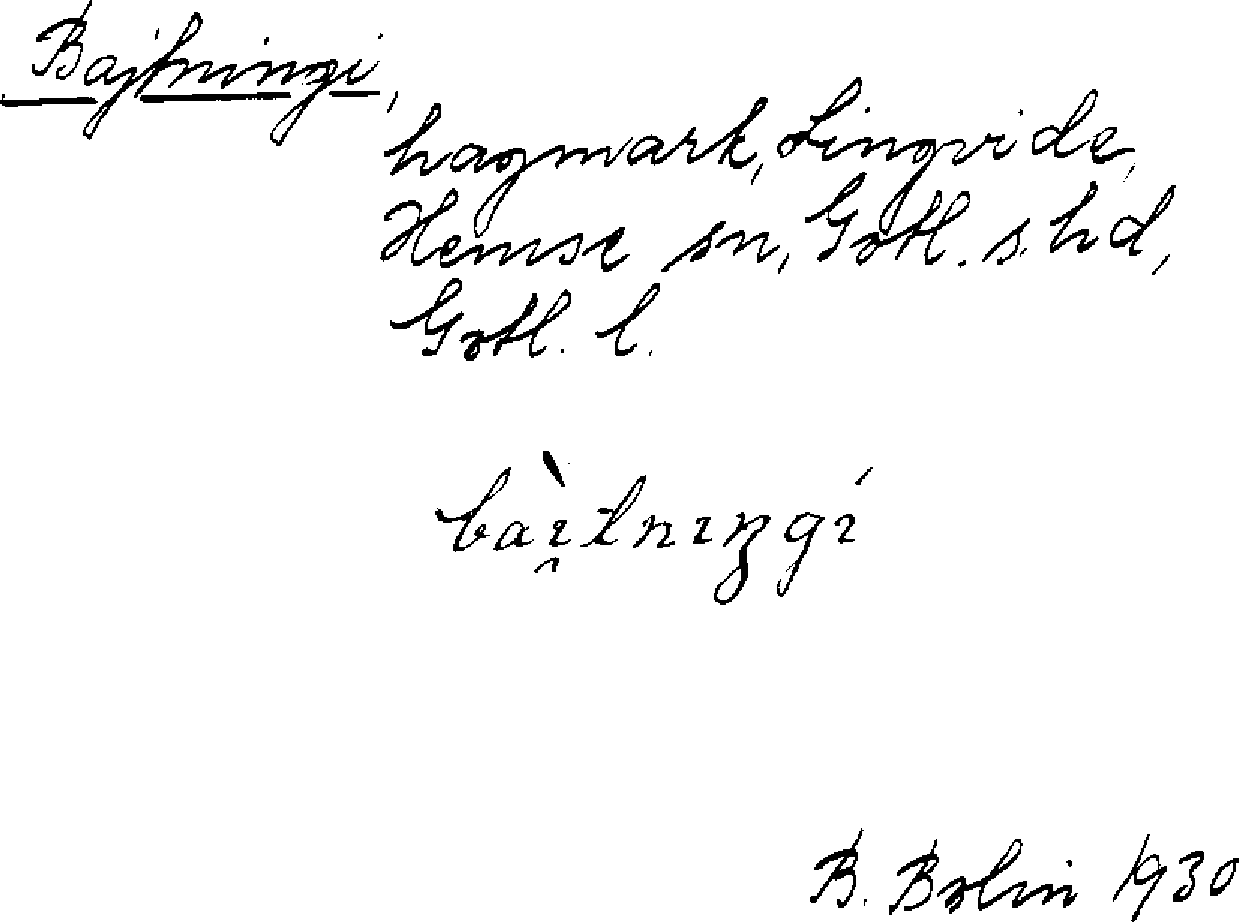 Bajtningi,
hagmark, Lingvide,
Hemse sn, Gotl. s. hd,
Gotl. l.
baı̯̀tnıŋgı́
B. Bolin 1930